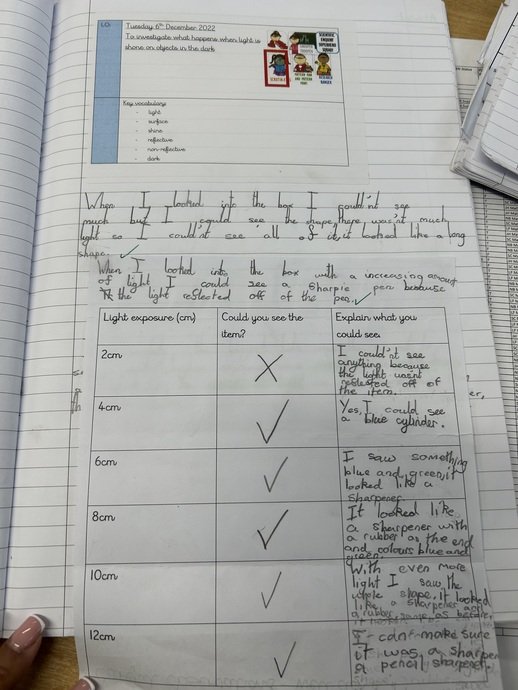 LO: Tuesday 6th December 2022
To investigate what happens when light is
shone on objects in the dark
Key vocabulary
- light
- surface
- shine
- reflective
- non-reflective
- dark
When I looked into the box I could'nt see
much but I could see the shape, there wasn't much
light so I could'nt see all of it, it looked like a long
shape.
When I looked into the box with a increasing amount
of light I could see a Sharpie pen because
the light reflected off of the pen.
Light exposure (cm) Could you see the item? Explain what you could see.
2cm
I could'nt see
anything because
the light wasnt
reflected off of
the item.
4cm
Yes, I could see
a blue cylinder.
6cm
I saw something
blue and green, it
looked like a
sharpener.
8cm
It looked like
a sharpener with
a rubber on the end
and colours blue and
green.
10cm
With even more
light I saw the
whole shape. It looked
like a sharpener and
a rubber, same as before,
12cm
I can make sure
it was a sharpe
a pencil sharpener